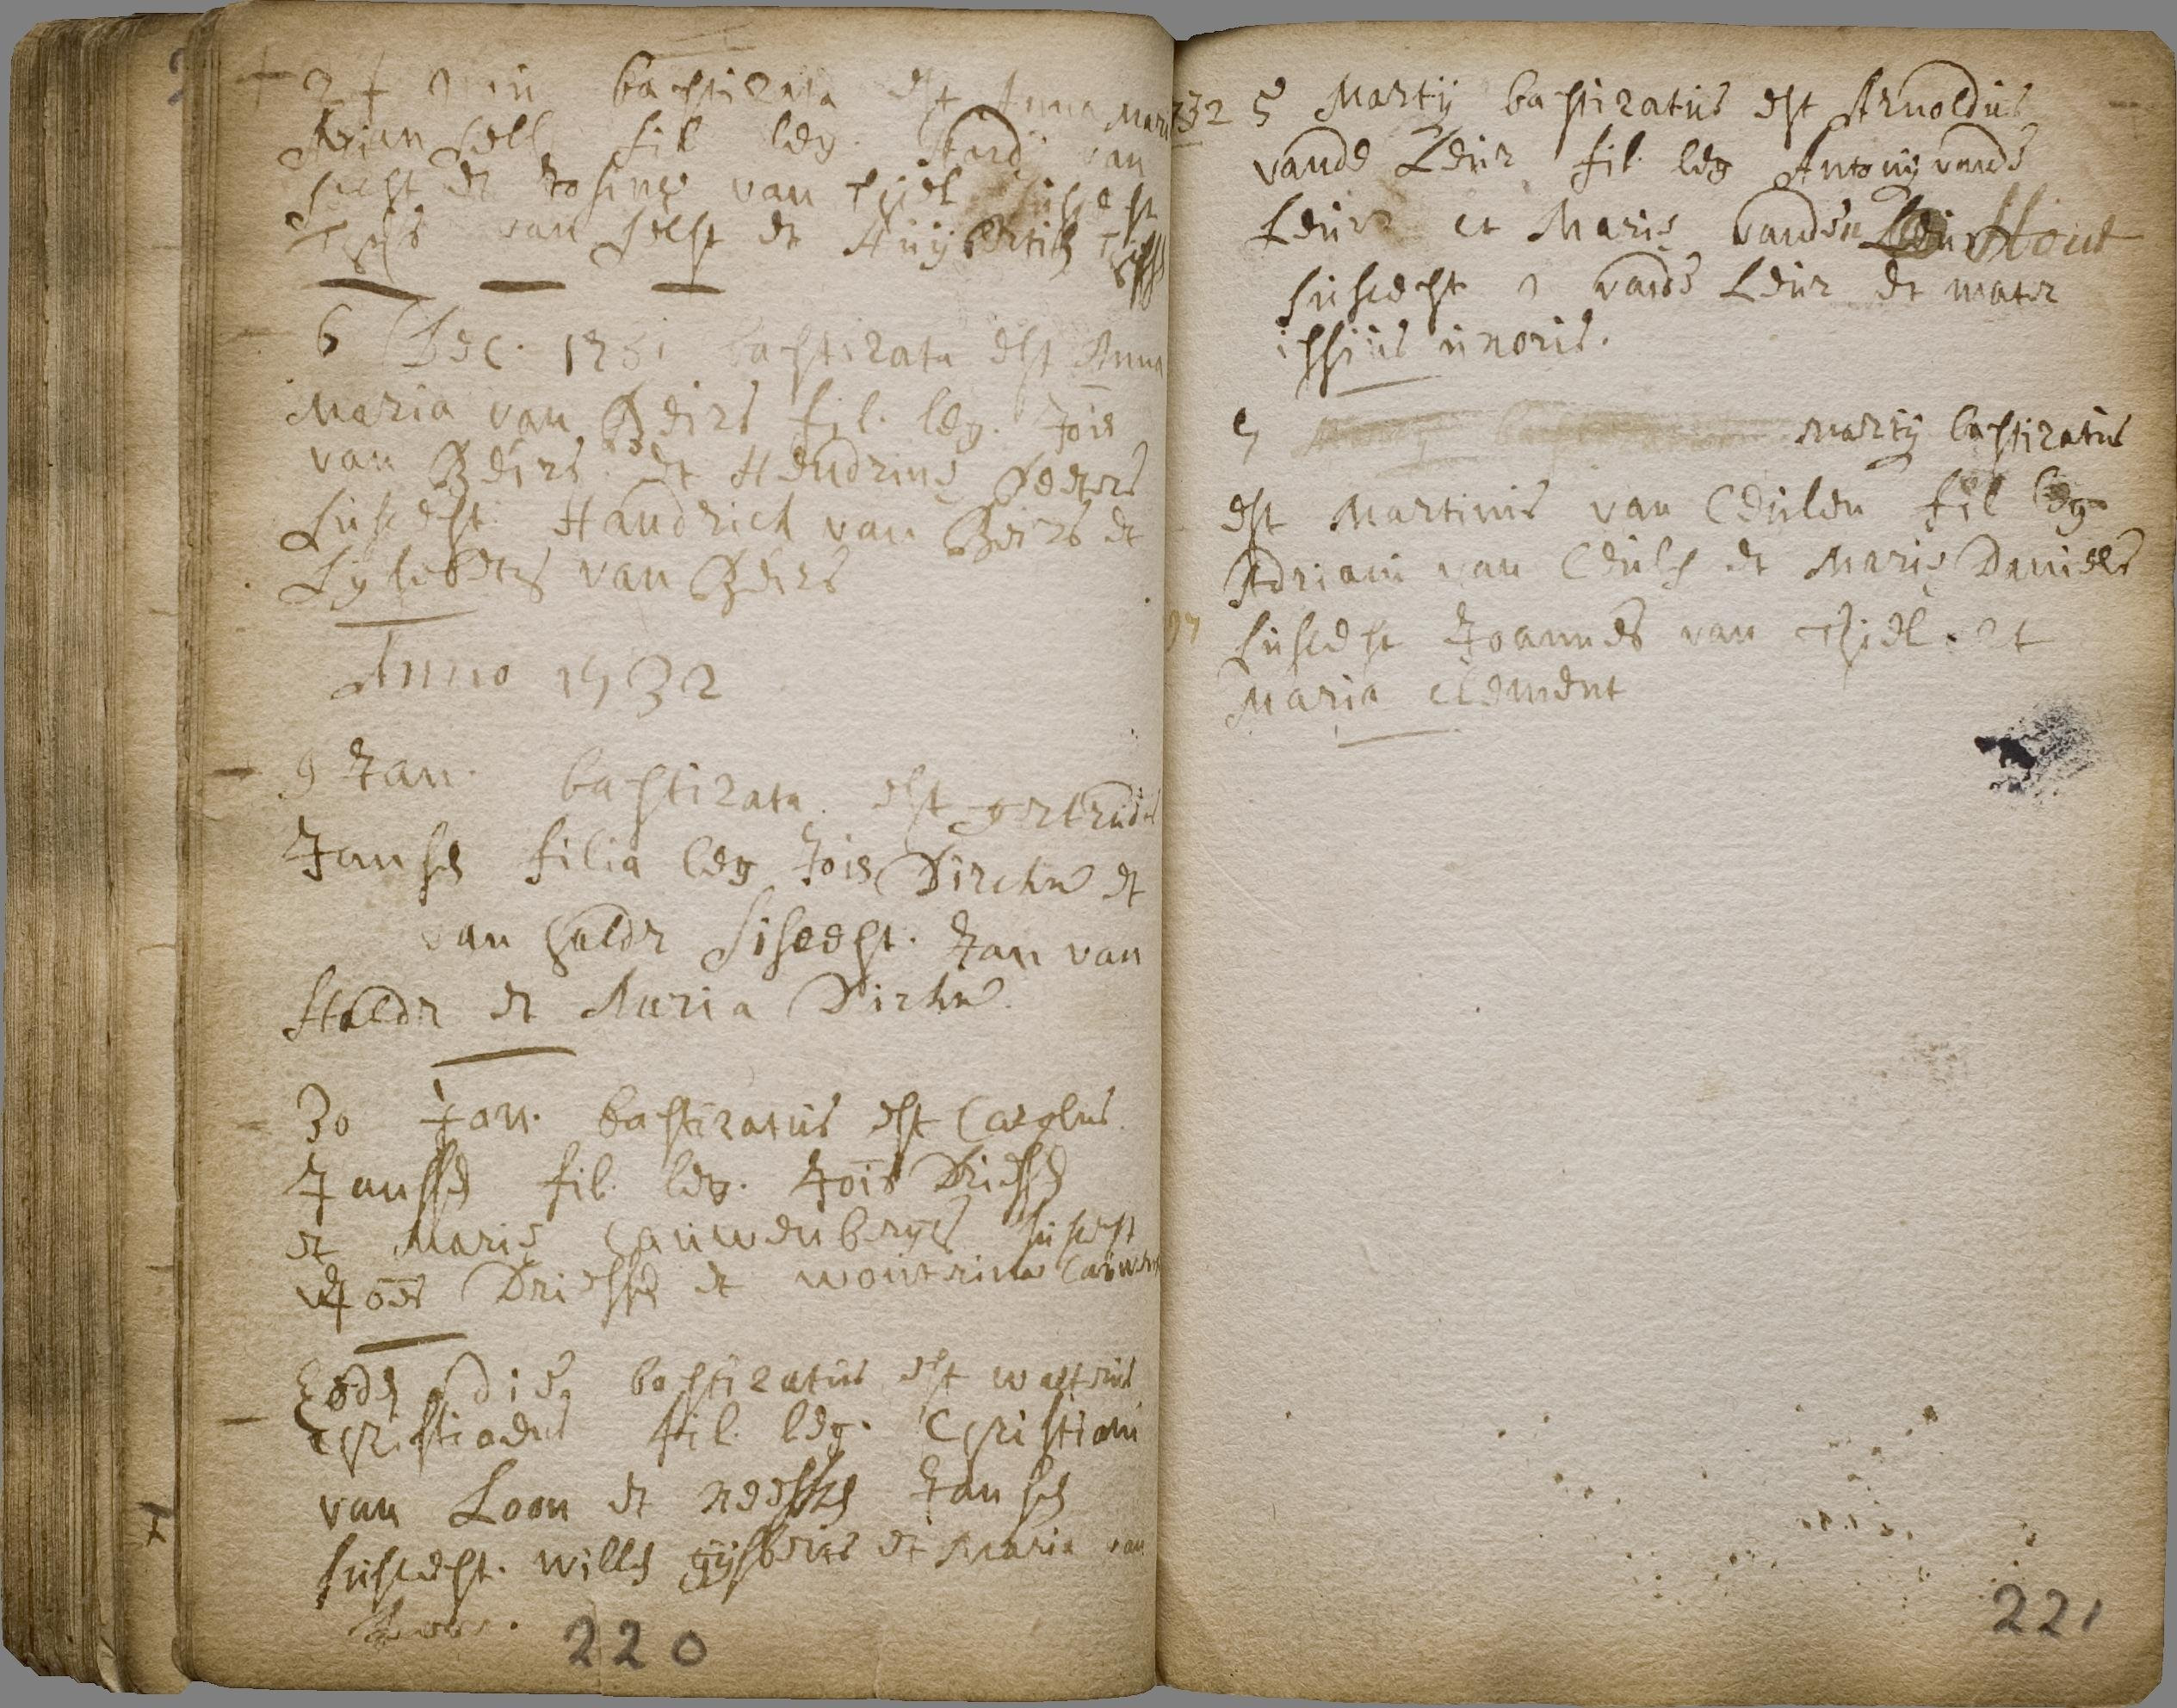 baptizata est Anna Mari
fil leg. van
et van Thiel suscept
van et Huijbertie
6 Dec. 1731 baptizata est Anna
Maria van Beers fil. leg. Jois
van Beers et Hendrinę Peters
Suscept. Handrick van Beers et
van Beers
Anno 1732
9 Jan. baptizata est gertrudis
Jansen filia leg Jois Dirckx et
van halder suscept. Jan van
Halder et Maria Dirckx
30 Jan. baptizatus est Carolus
Janssen fil. leg. Jois Driessen
et Marię Cauwenbergs suscept
Joes Driessen et Wouterina Cauwen
Eodem die baptizatus est walterus
Christiaens fil. leg. Christiani
van Loon et Jansen
suscept. Willem gijsberts et Maria van
220
732 5 Martij baptizatus est Arnoldus
vande Leur fil. leg Antonij vande
Leur et Marię vanden Hout
suscept vande Leur et mater
ipsius uxoris.
Martij baptizatus
est Martinus van Ceulen fil leg
Adriani van Ceulen et Marię Daniels
suscept Joannes van Thiel et
Maria Clement
221